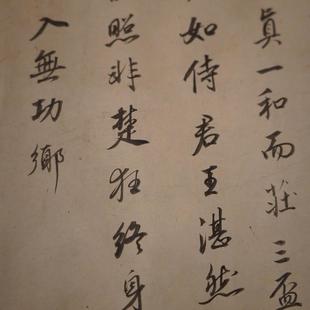 真一和而莊三盃
如侍君王湛然
照非楚狂終身
入無功鄉